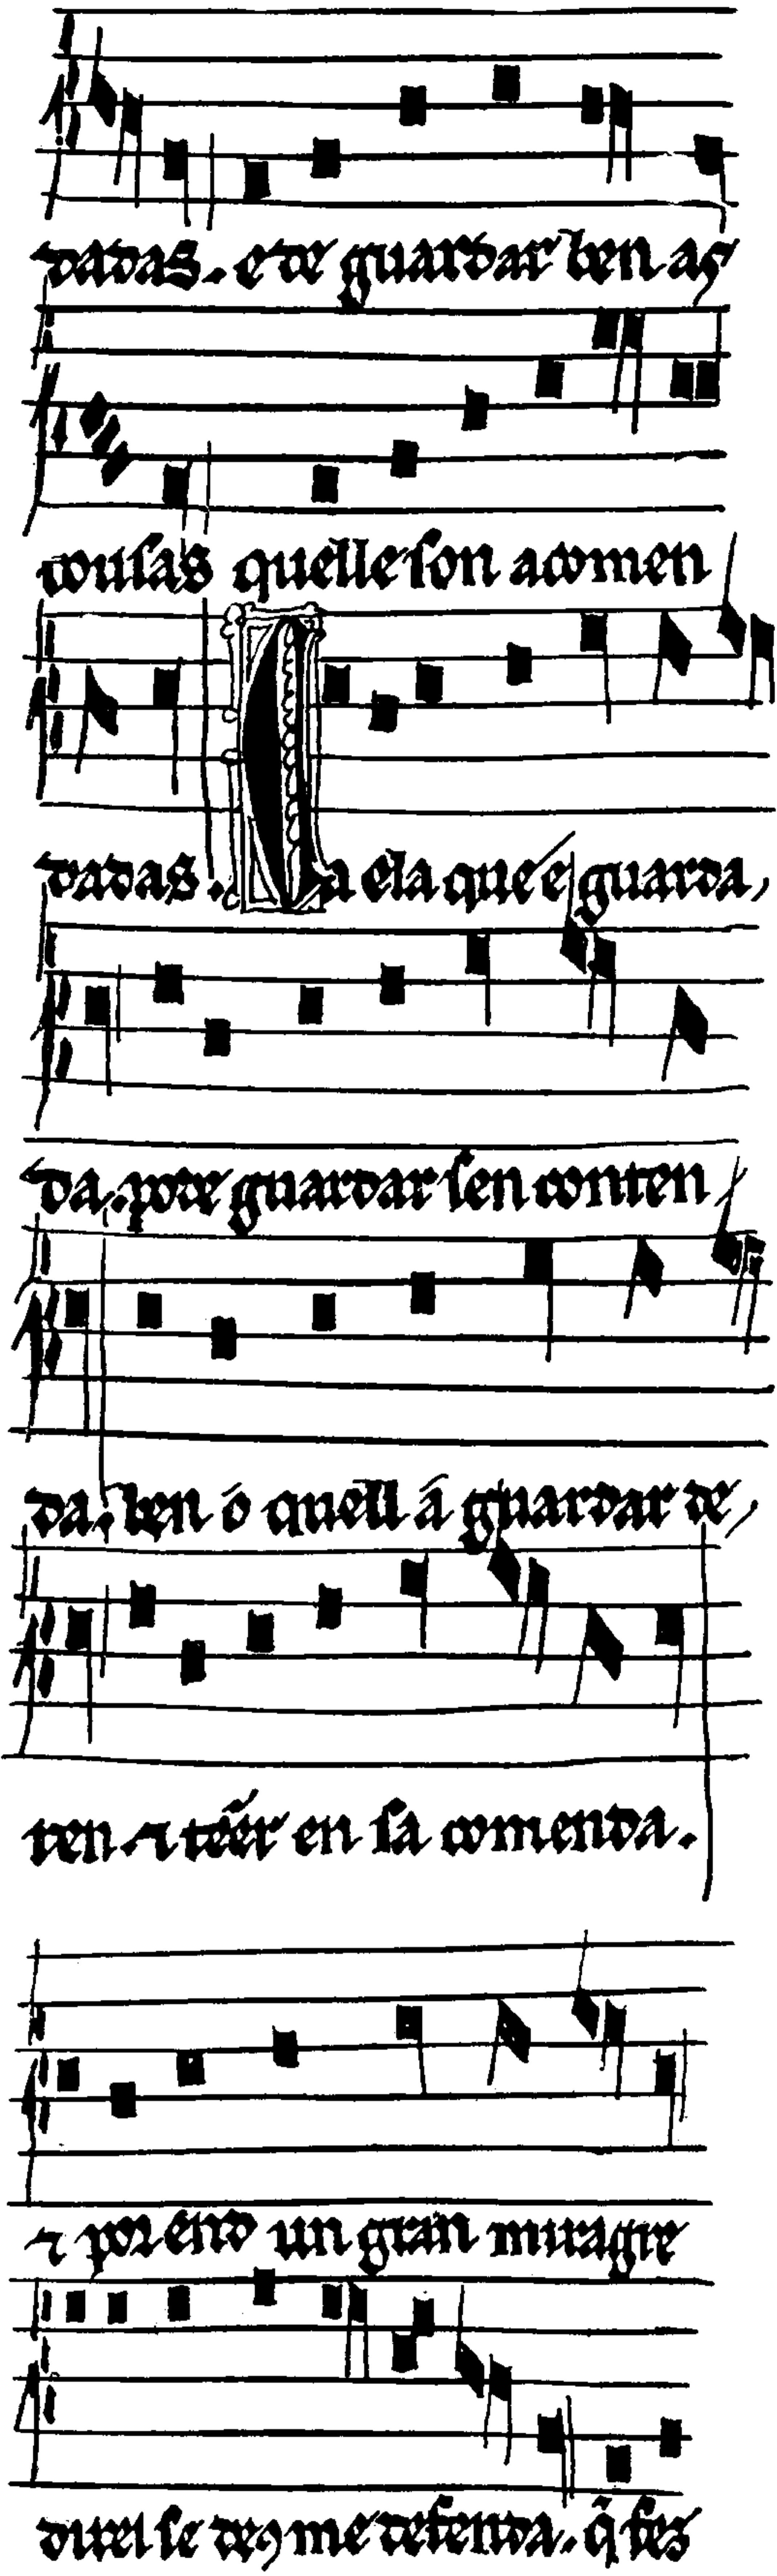 dadas. e de guardar ben as
cousas quelle son acomen
dadas. Ca ela que é guarda
da. pode guardar sen conten
da. ben o quell á guardar de
ren ⁊ tẽer en sa comenda.
⁊ porend un gran miragre
direi se deꝯ me defenda. q̃ fez